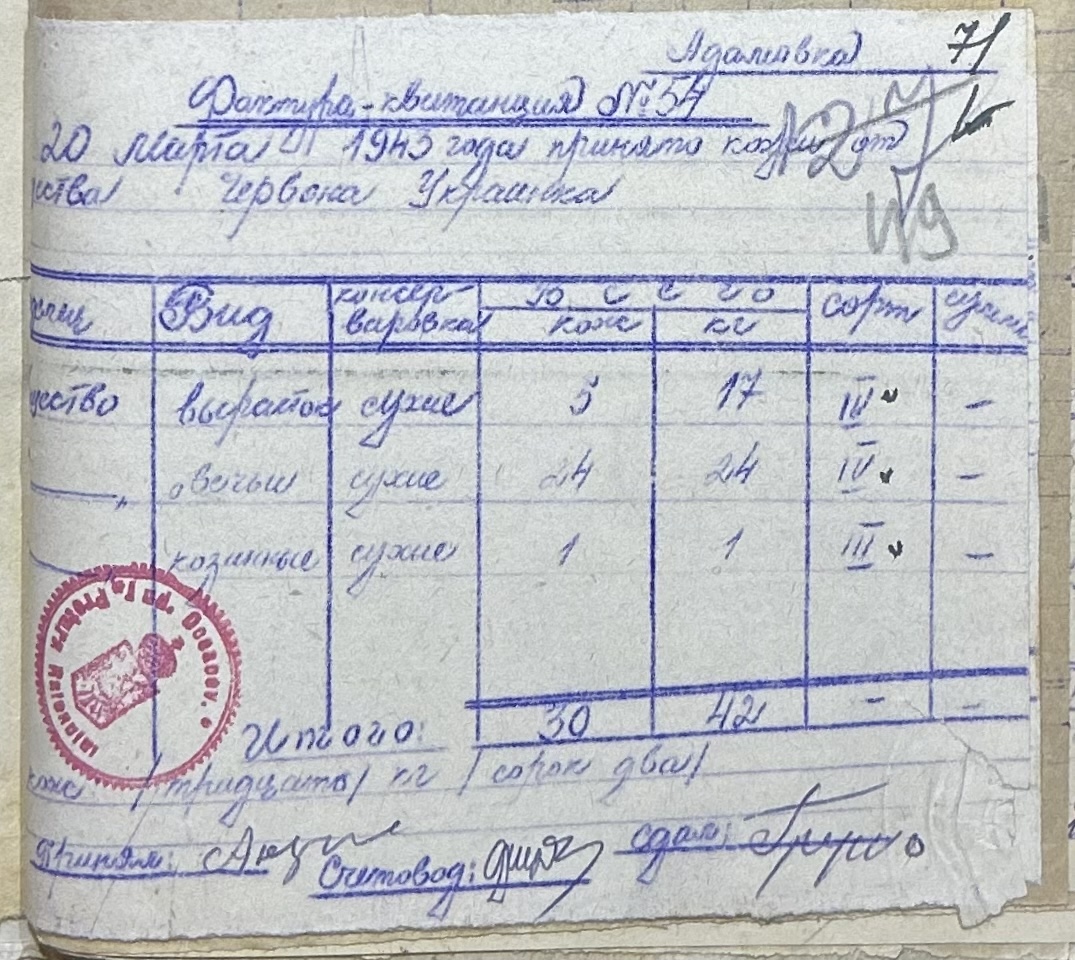 Адамовка 71
Фактура-квитанция № 54
20 Марта 1943 года принято кожи от
ества Червона Украинка
Вид консер- Всего сорт
вировка кож кг
ество выраток сухие 5 17 III -
—„— овечьи сухие 24 24 IV -
козинные сухие 1 1 III -
Итого: 30 42 - -
кож /тридцать/ кг /сорок два/
Принял: Счетовод: сдал: